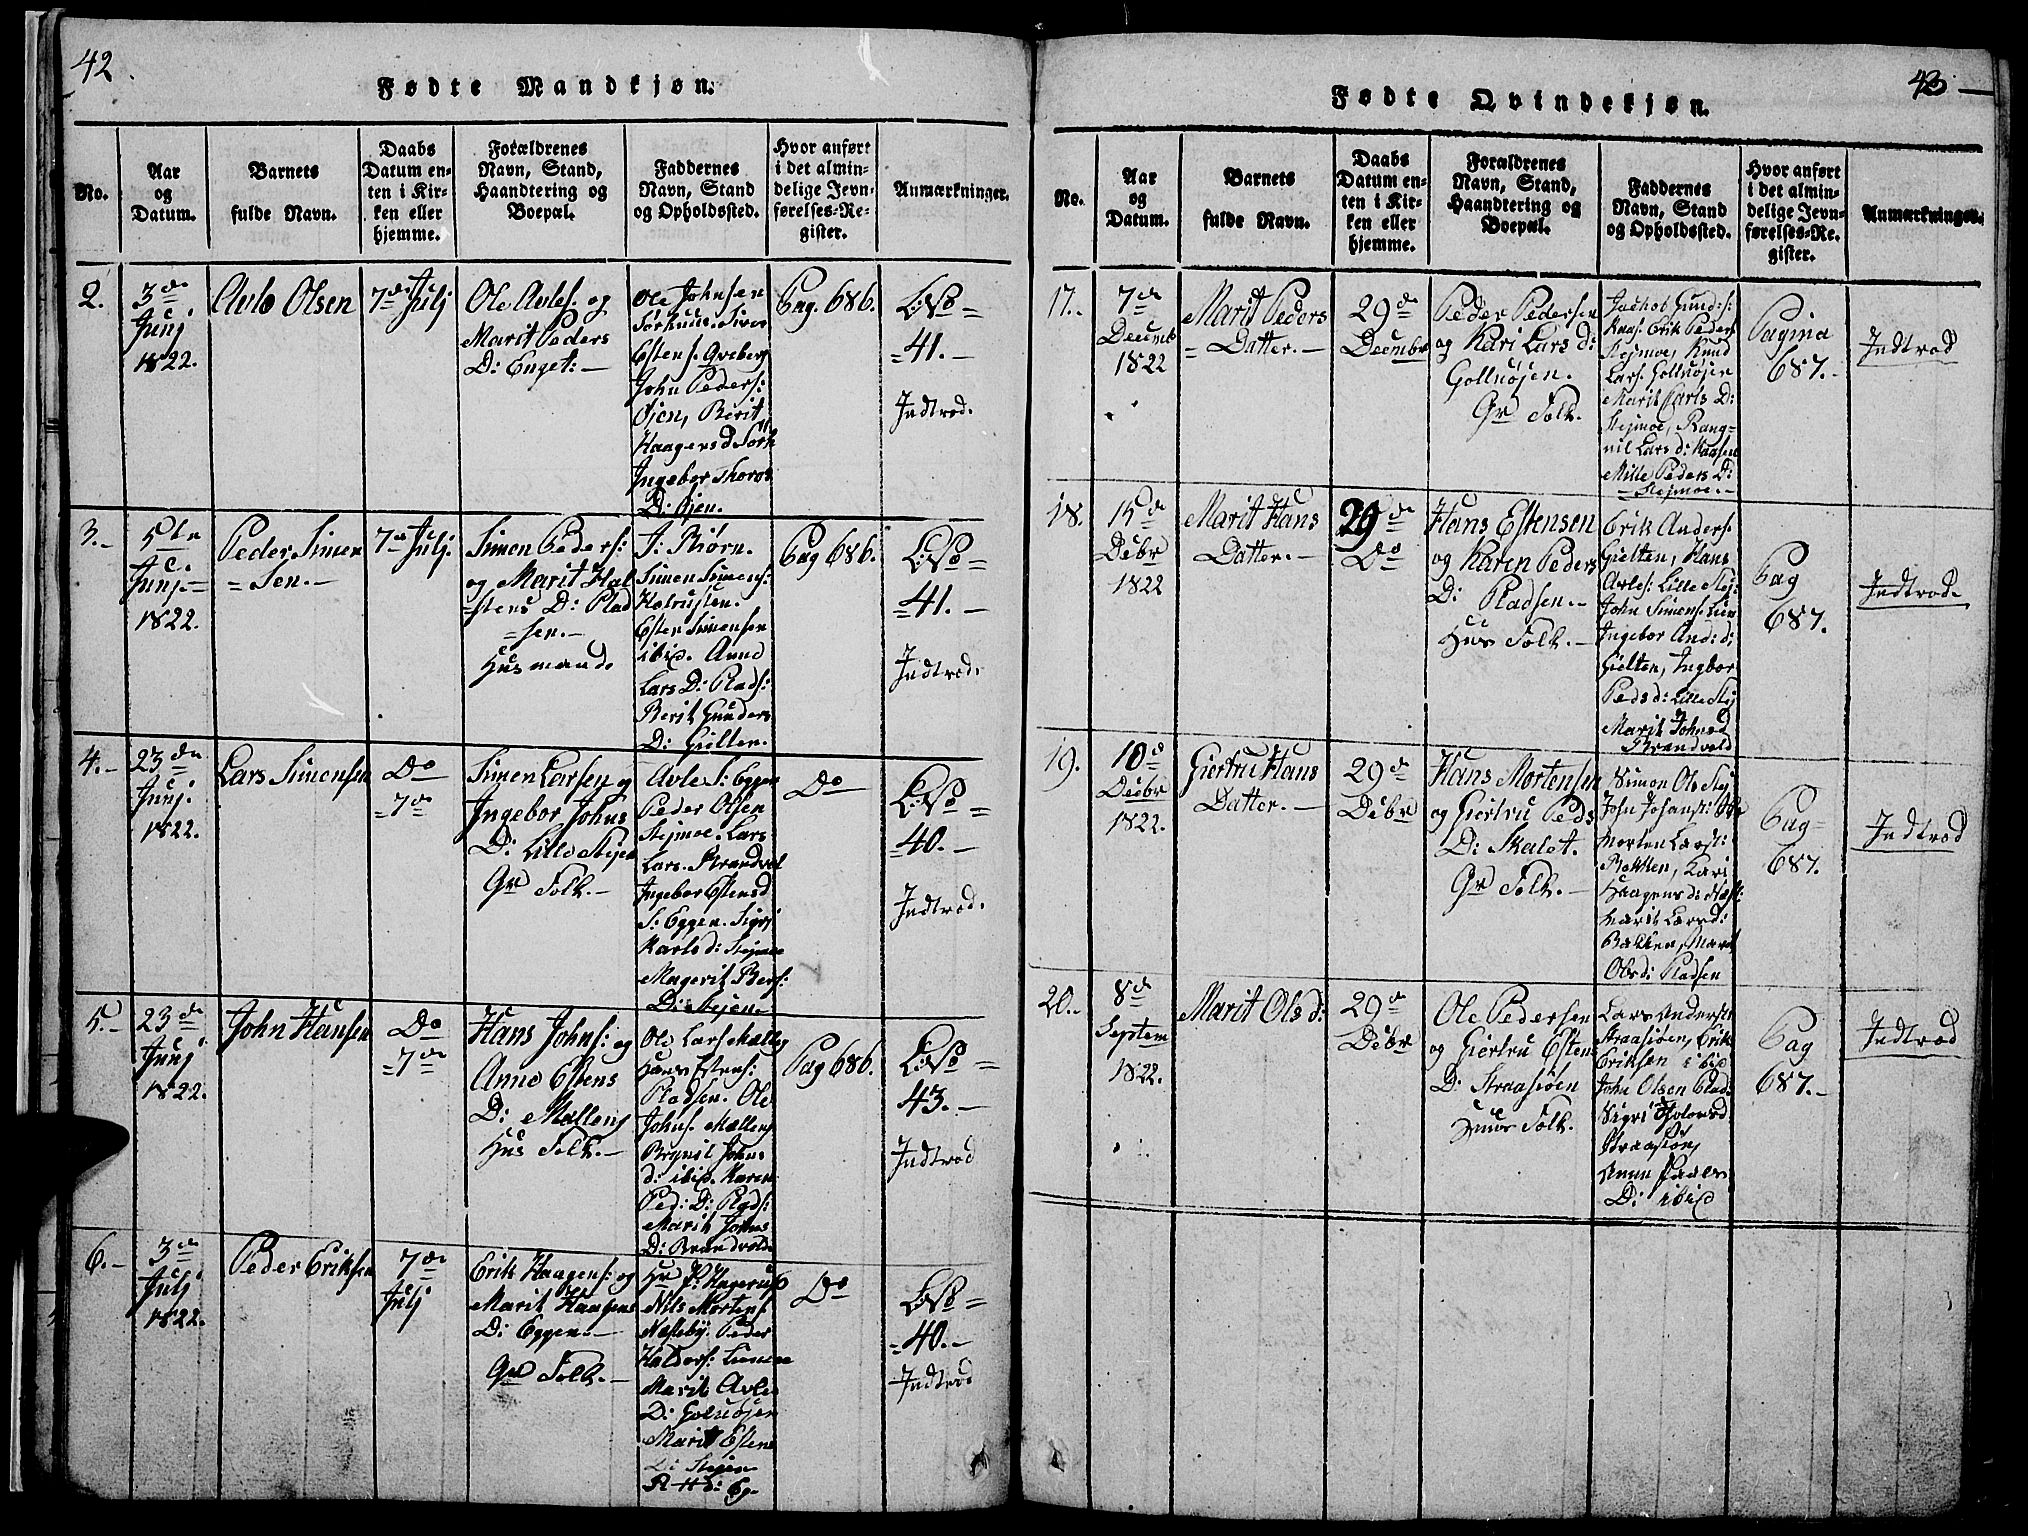 42.
Fødte Mandkjøn.
No.
Aar
og
Datum.
Barnets
fulde Navn.
Daabs
Datum en-
ten i Kir-
ken eller
hjemme.
Forældrenes
Navn, Stand,
Haandtering og
Boepæl.
Faddernes
Navn, Stand
og Opholdssted.
Hvor anført
i det almin-
delige Jevn-
førelses-Re-
gister.
Anmærkninger.
2.
3de
Junj
1822.
Avlo Olsen
7de Julj
Ole Avles. og
Marit Peders
D: Enget: —
Ole Johnsen
Estens.
John Peders:
Øjen, Berit
Haagens d
Ingebor Thoros
D: Øjen.
Pag. 686.
41. —
Indtrod.
3. —
5te
Junj. —
1822.
Peder Simen
= Sen. —
7de Julj.
Simon Peders:
og Marit Hal
=stens D: Plad
=sen. —
Husmand.
J. Biørn.
Simen Simens:
Esten Simensen
ibid. Anne
Lars D: Plads:
Berit Gunders
D: Gielten.
Pag 686.
=41. —
Indtrod.
4. —
23de
Junj.
1822.
Lars Simensen
Do
=7de
Simen Larsen og
Ingebor Johns
D: Lille Stejen
Gr Folk. —
Avle S: Eggen
Peder Olsen
Stejmoe. Lars
Lars. Brandvol
Ingebor Estens d
S: Eggen. Sigri
Karls d: Stejmoe
Magerit Bers:
D: Stejen.
Do
=40. —
Indtrod.
5. —
23de
Junj
1822.
John Hansen
Do
=7de
Hans Johns: og
Anne Estens
D: Mælleng
Hus Folk. —
Ole Lars Mælleng
Hans Estens:
Pladsen. Ole
Johns. Mælleng
Brynil Johns
d: ibid. Karen
Ped: D: Plads:
Marit Johns
D: Brandvold
Pag 686.
43. —
Indtrod
6. —
3de
Julj
1822.
Peder Eriksen
7de
Julj
Erik Haagens: og
Marit Haagens
D: Eggen. —
Gr Folk. —
Hr P: Hagerup
Nils Mortens
Næsteby. Peder
Haldors:
Marit Avle
D: Golluøjen
Marit Estens
D: Stejen
Do
=40. —
Indtrod
43 —
Fødte Qvindekjøn.
No.
Aar
og
Datum.
Barnets
fulde Navn.
Daabs
Datum en-
ten i Kir-
ken eller
hjemme.
Forældrenes
Navn, Stand,
Haandtering og
Boepæl.
Faddernes
Navn, Stand
og Opholdssted.
Hvor anført
i det almin-
delige Jevn-
førelses-Re-
gister.
Anmærkninger.
17. —
7de
Decemb
1822
Marit Peders
= Datter. —
29de
Decembr
Peder Pedersen
og Kari Lars d:
Golluøjen.
Gr Folk.
Jachob Gunds:
Kaas: Erik Peders
Stejmoe, Knud
Lars. Golluøjen
Marit Carls D:
Stejmoe, Rang=
nil Lars d: Kaasen
Mille Peders D:
= Stejmoe. —
Pagina
687. —
Indtrod
18.
15de
Debr
1822
Marit Hans
Datter. —
29de
Do
Hans Estensen
og Karen Peders
D: Pladsen. —
Hus Folk. —
Erik Anders:
Gielten, Hans
Avles: Lille Stej:
John Simens: Lien
Ingebor And: d:
Gielten, Ingbor
Peds d: Lille Stej
Marit Johns d
Brandvold
Pag
687.
Indtrod.
19.
10de
Debr
1822.
Giertru Hans
Datter. —
29de
Debr
Hans Mortensen
og Giertru Peds
D: Skalet.
Gr Folk. —
Simon Ols Stej
John Johans:
Morten Lars:
Bakken, Kari
Haagens d:
Marit Lars d:
Bakken, Marit
Ols d: Pladsen
Pag=
687.
Indtrod
20. —
8de
Septem
1822.
Marit Ols d:
29de
Debr
Ole Pedersen
og Giertru Estens
D: Straasiøen
Huus Folk.
Lars Anders:
Straasiøen, Erik
Eriksen ibid
John Olsen Plad:
Sigri
Straasiøn,
Anne
D: ibid
Pag
687. —
Indtrod